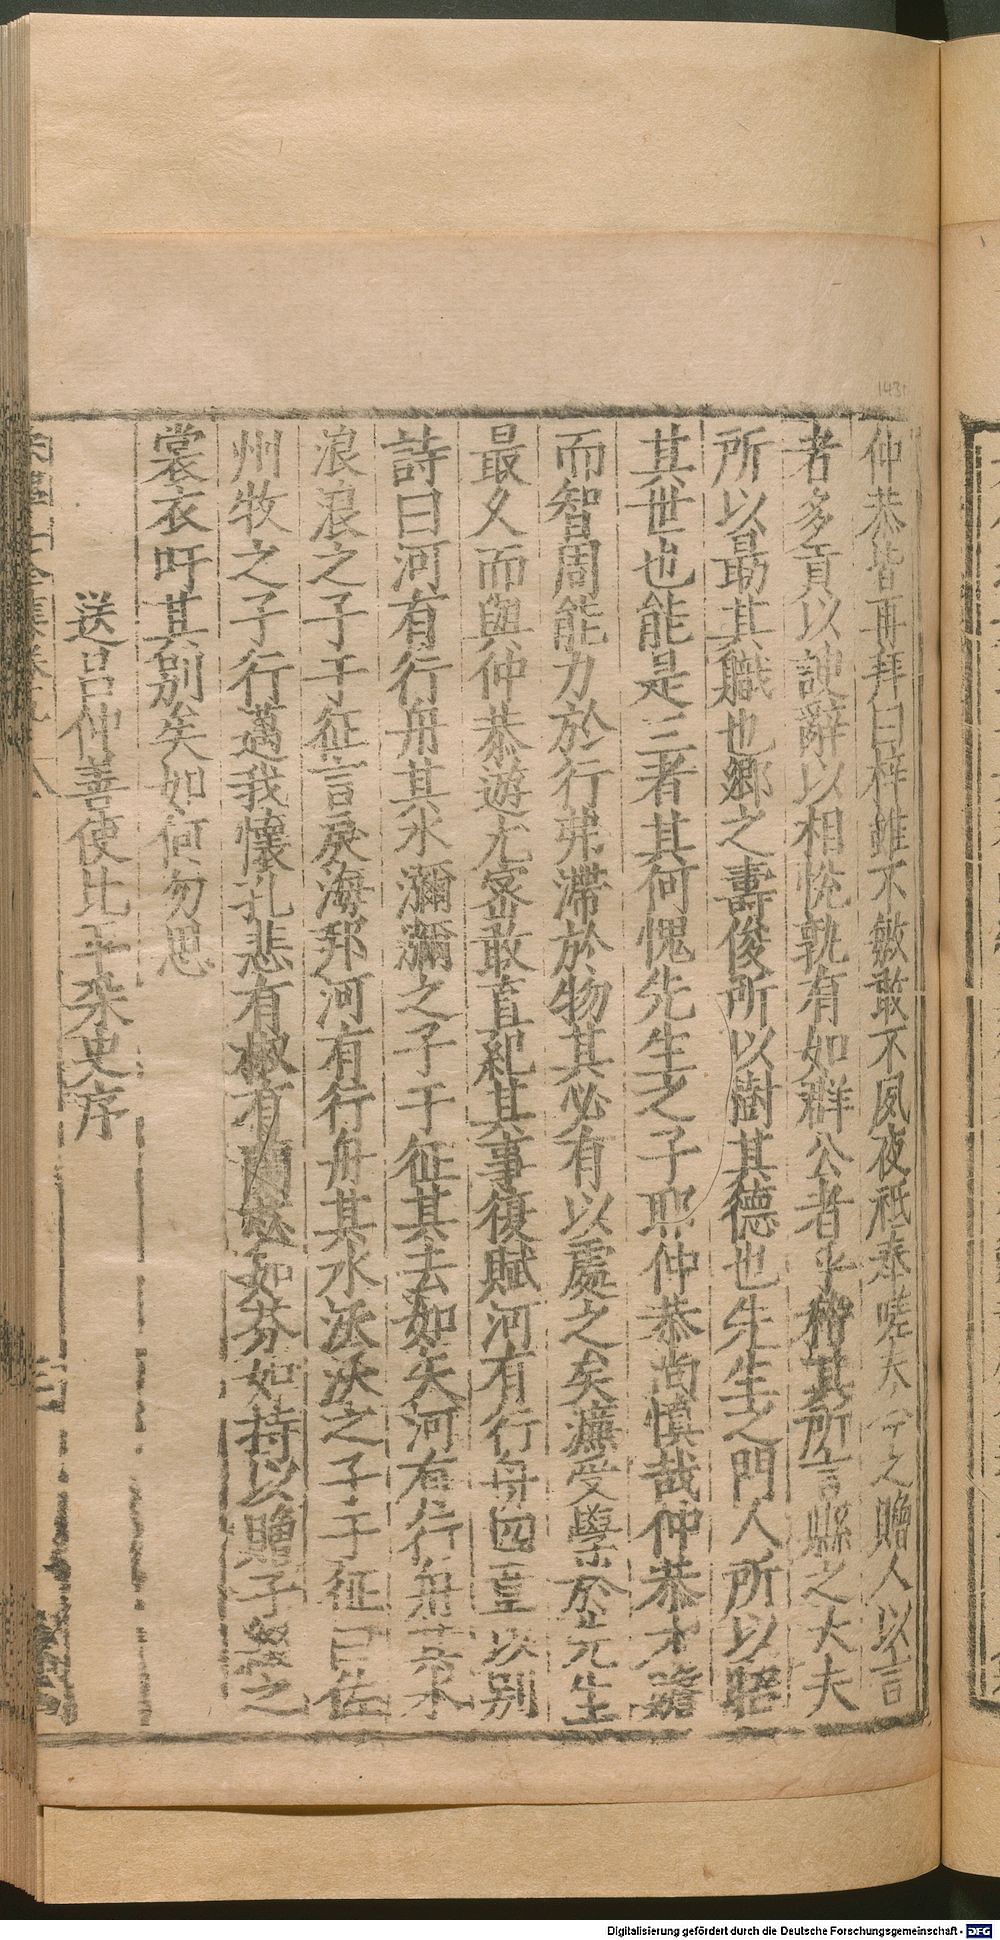 仲恭皆再拜曰梓雖不敏敢不夙夜祗奉嗟夫今之贈人以言
者多貢以諛辭以相悅孰有如群公者乎稽其所言縣之大夫
所以勗其職也鄉之壽俊所以樹其德也先生之門人所以昭
其世也能是三者其何愧先生之子耶仲恭尚慎哉仲恭才贍
而智周能力於行弗滯於物其必有以處之矣濂受學於先生
最久而與仲恭遊尤密敢直紀其事復賦河有行舟四章以別
詩曰河有行舟其水瀰瀰之子于征其去如矢河有行舟其水
浪浪之子于征言戾海邦河有行舟其水泱泱之子于征已佐
州牧之子行邁我懷孔悲有椒有蘭苾如芬如持以贈子綴之
裳衣吁其別矣如何勿思
送呂仲善使北平采史序
1431
Digitalisierung gefördert durch die Deutsche Forschungsgemeinschaft - DFG